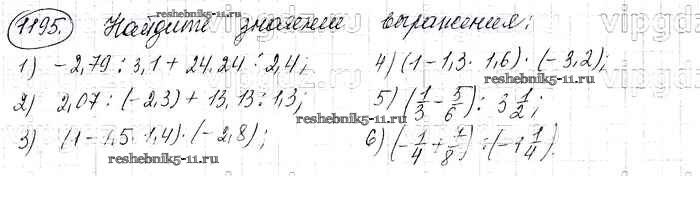 1195. Найдите значении выражения:
1) -2,79 : 3,1 + 24,24 : 2,4;
2) 2,07 : (-2,3) + 13,13 : 1,3;
3) (1 - 1,5 · 1,4) · (-2,8);
4) (1 - 1,3 · 1,6) · (-3,2);
5) (1/3 - 5/6) : 3 1/2;
6) (-1/4 + 1/8) : (-1 1/4).
reshebnik5-11.ru
reshebnik5-11.ru
reshebnik5-11.ru
reshebnik5-11.ru
reshebnik5-11.ru